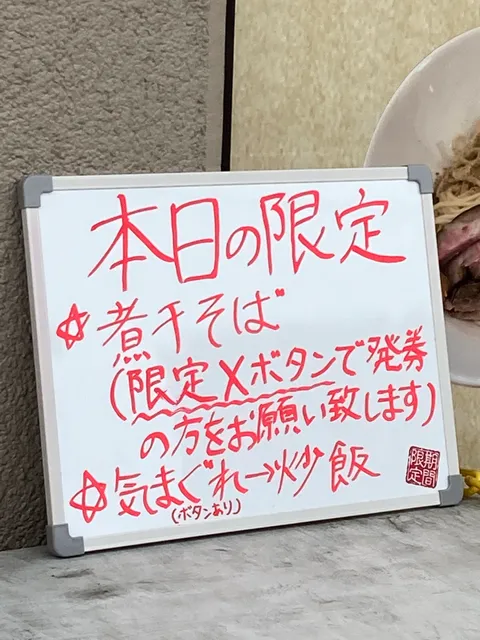 本日の限定
☆煮干そば
(限定Xボタンで発券
の方をお願い致します)
☆気まぐれ→炒飯
(ボタンあり)
期間
限定